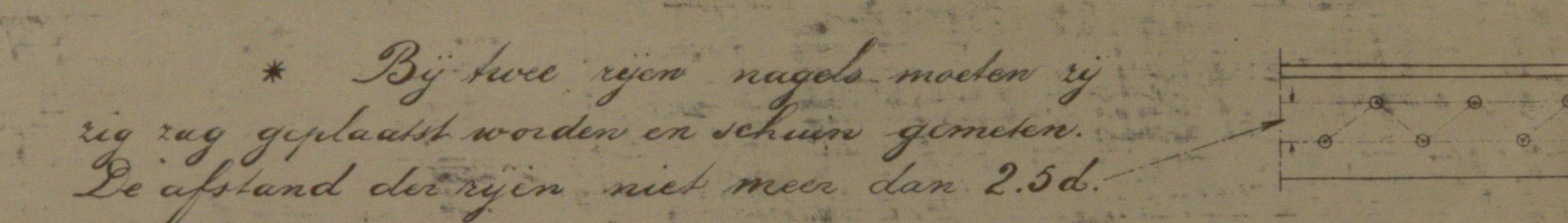 * Bij twee rijen nagels moeten zij
zig zag geplaatst worden en schuin gemeten.
De afstand der rijen niet meer dan 2.5d.